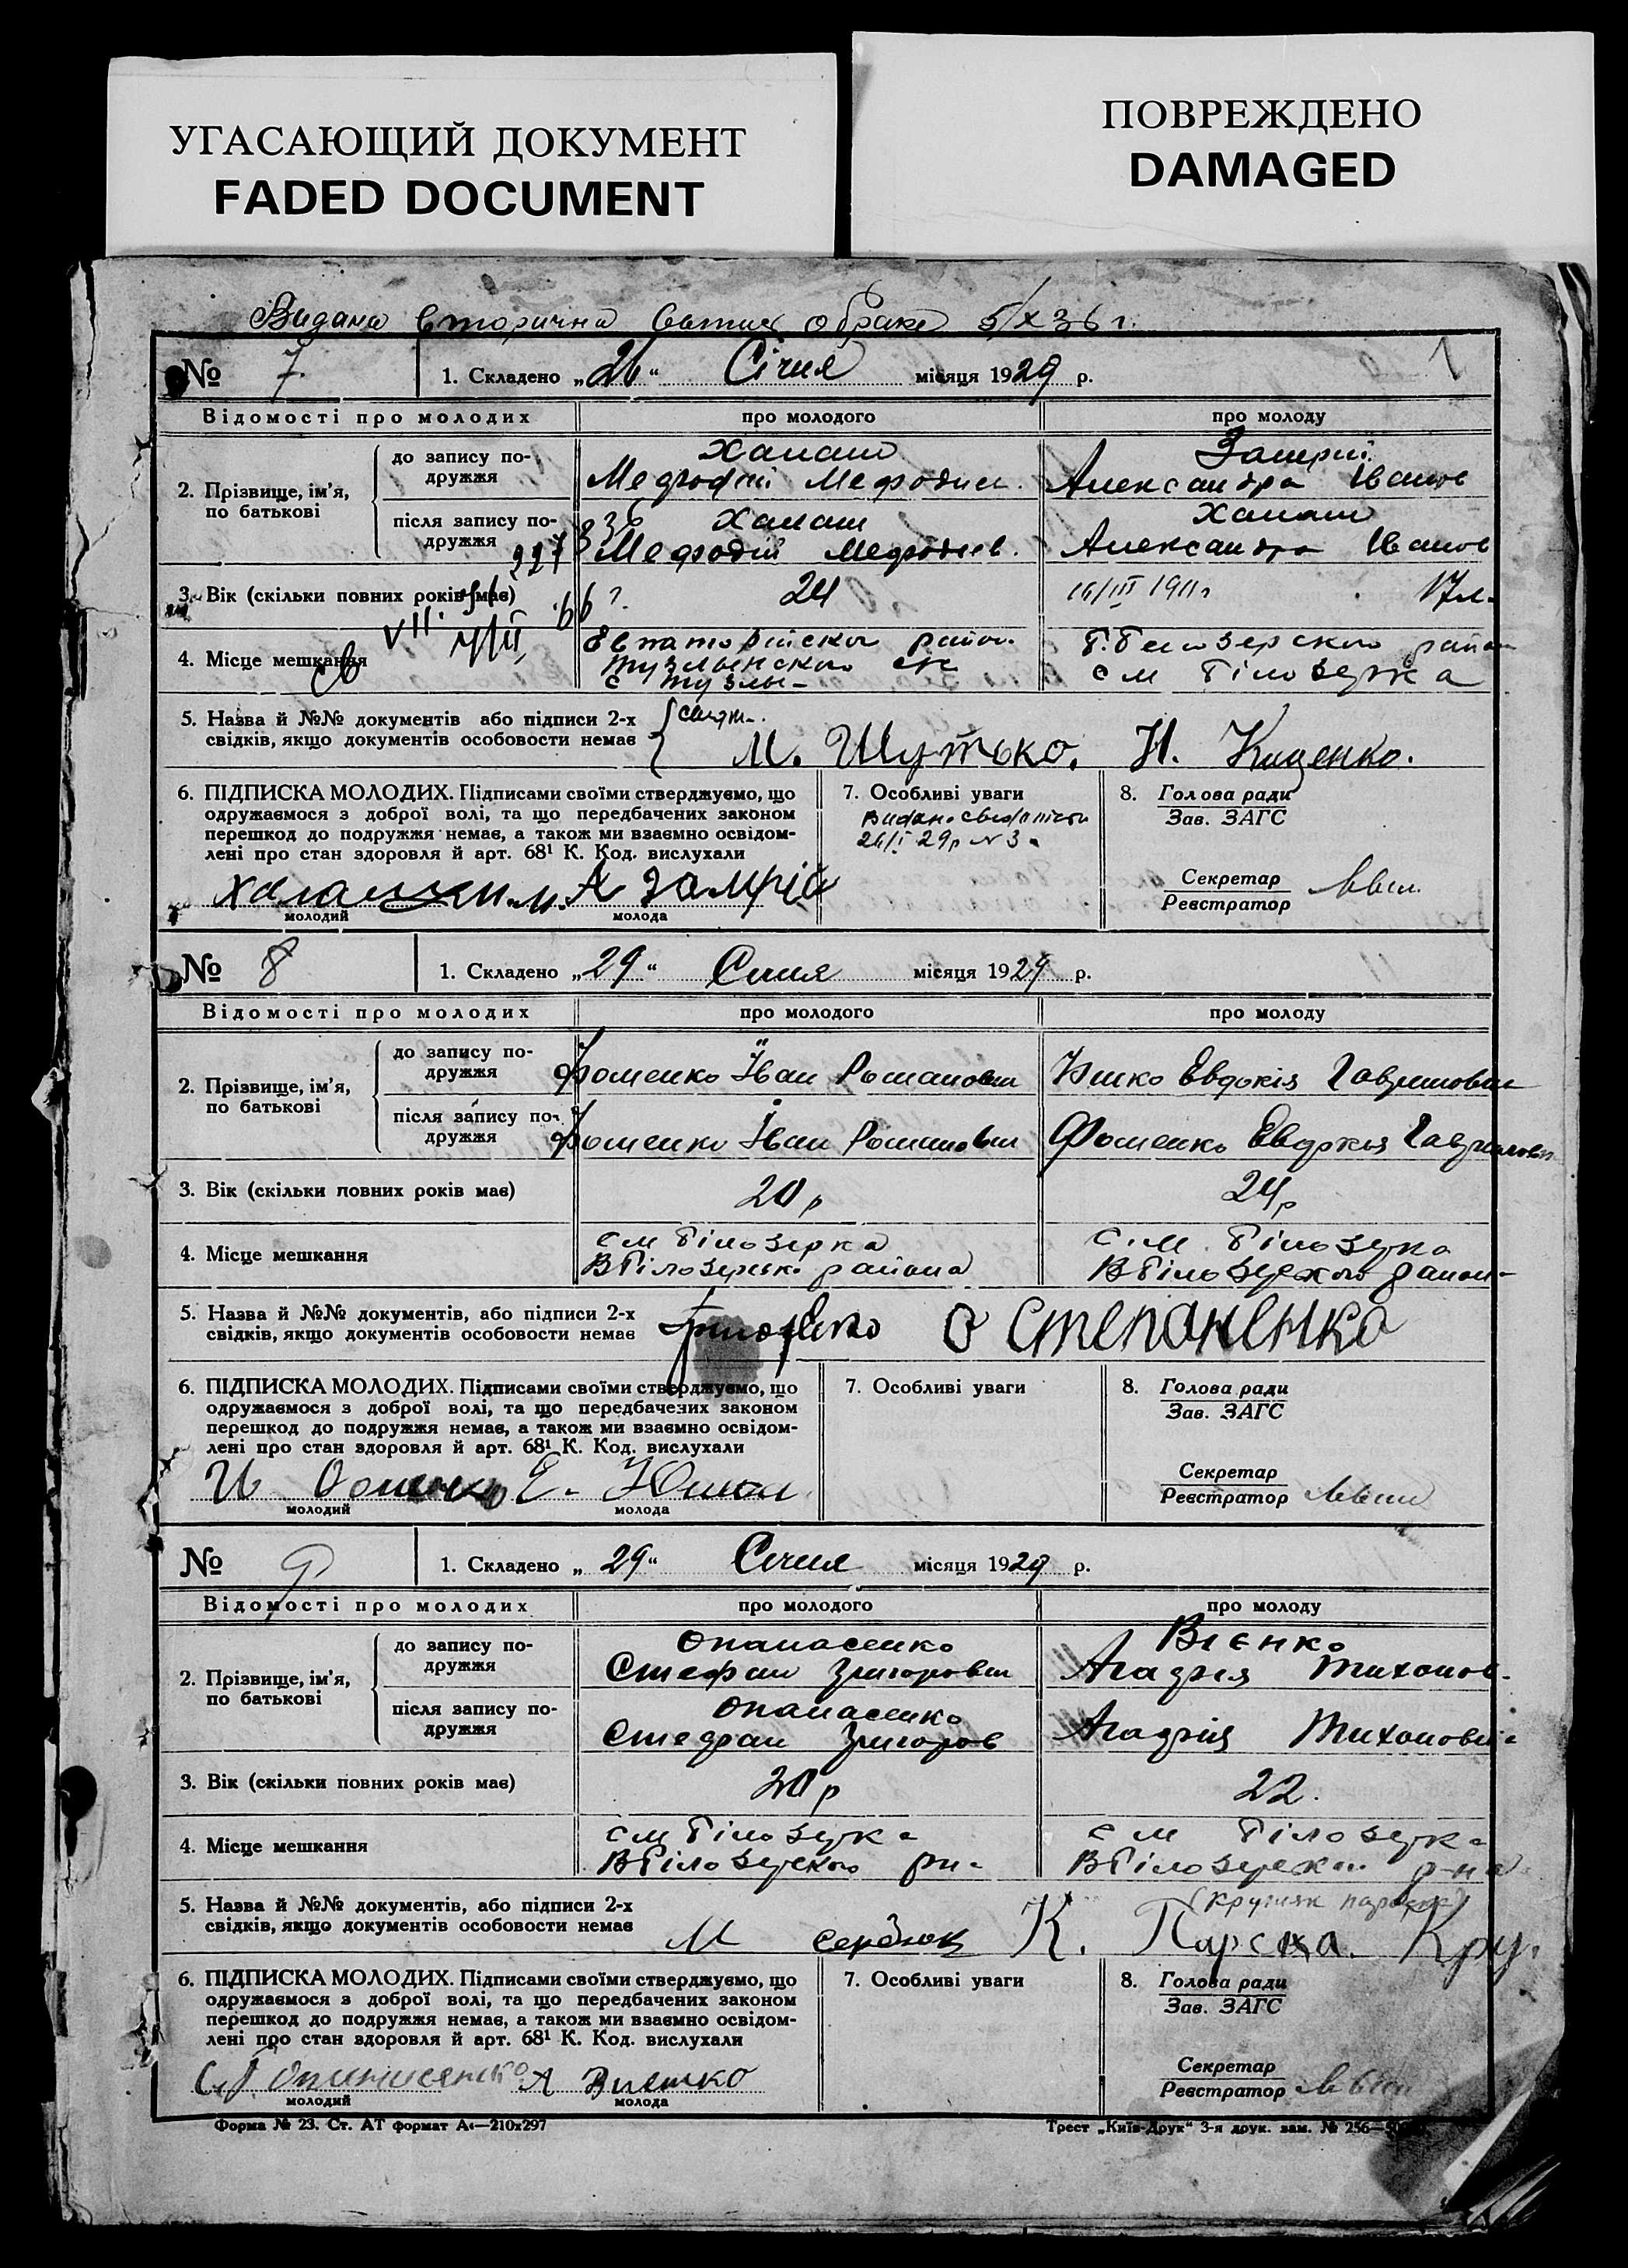 УГАСАЮЩИЙ ДОКУМЕНТ
FADED DOCUMENT
ПОВРЕЖДЕНО
DAMAGED
Видана вторична о браке 5/X 36 г.
№ 7 1. Складено „26“ Січня місяця 1929 р.
1
Відомості про молодих про молодого про молоду
2. Прізвище, ім’я, по батькові
до запису подружжя
Халаш
Мефодій Мефодиев.
Замрій
Александра Іванов
після запису подружжя
Халаш
Мефодій Мефодиев.
Халаш
Александра Іванов
3. Вік (скільки повних років має) 24 16/III 1911 г 17 л.
4. Місце мешкання
Евпаторійского район.
Тузлынского
с Тузлы-
Б. Белозерского район
с м Білозерка
5. Назва й №№ документів або підписи 2-х
свідків, якщо документів особовости немає
М. Шутько. Н. Куценко.
6. ПІДПИСКА МОЛОДИХ. Підписами своїми стверджуємо, що
одружаємося з доброї волі, та що передбачених законом
перешкод до подружжя немає, а також ми взаємно освідом-
лені про стан здоровля й арт. 68¹ К. Код. вислухали
7. Особливі уваги
26/I 29р № 3
8. Голова ради
Зав. ЗАГС
Секретар
Реєстратор
А Замрій
молодий молода
№ 8 1. Складено „29“ Січня місяця 1929 р.
Відомості про молодих про молодого про молоду
2. Прізвище, ім’я, по батькові
до запису подружжя
Фоменко Іван Романович Евдокія Гавриловн
після запису подружжя
Фоменко Іван Романович Фоменко Евдокия Гавриловн
3. Вік (скільки повних років має) 20 р 24 р
4. Місце мешкання
с м Білозерка
В Білозерськ. района
с. м. Білозерка
В Білозерского район-
5. Назва й №№ документів, або підписи 2-х
свідків, якщо документів особовости немає
О Степаненко
6. ПІДПИСКА МОЛОДИХ. Підписами своїми стверджуємо, що
одружаємося з доброї волі, та що передбачених законом
перешкод до подружжя немає, а також ми взаємно освідом-
лені про стан здоровля й арт. 68¹ К. Код. вислухали
7. Особливі уваги
8. Голова ради
Зав. ЗАГС
Секретар
Реєстратор
молодий молода
№ 9 1. Складено „29“ Січня місяця 1929 р.
Відомості про молодих про молодого про молоду
2. Прізвище, ім’я, по батькові
до запису подружжя
Опанасенко
Стефан Григорович
Вієнко
Агафия Тихонов-
після запису подружжя
Опанасенко
Стефан Григоров
Агафия Тихоновн-
3. Вік (скільки повних років має) 20 р 22.
4. Місце мешкання
с м Білозерка
В Білозерского рн-
с м Білозерка
В Білозерского р-на
5. Назва й №№ документів, або підписи 2-х
свідків, якщо документів особовости немає
М Сердюк К.
6. ПІДПИСКА МОЛОДИХ. Підписами своїми стверджуємо, що
одружаємося з доброї волі, та що передбачених законом
перешкод до подружжя немає, а також ми взаємно освідом-
лені про стан здоровля й арт. 68¹ К. Код. вислухали
7. Особливі уваги
8. Голова ради
Зав. ЗАГС
Секретар
Реєстратор
молодий молода
Форма № 23. Ст. АТ формат А₄—210х297
Трест „Київ-Друк“ 3-я друк. зам. № 256—